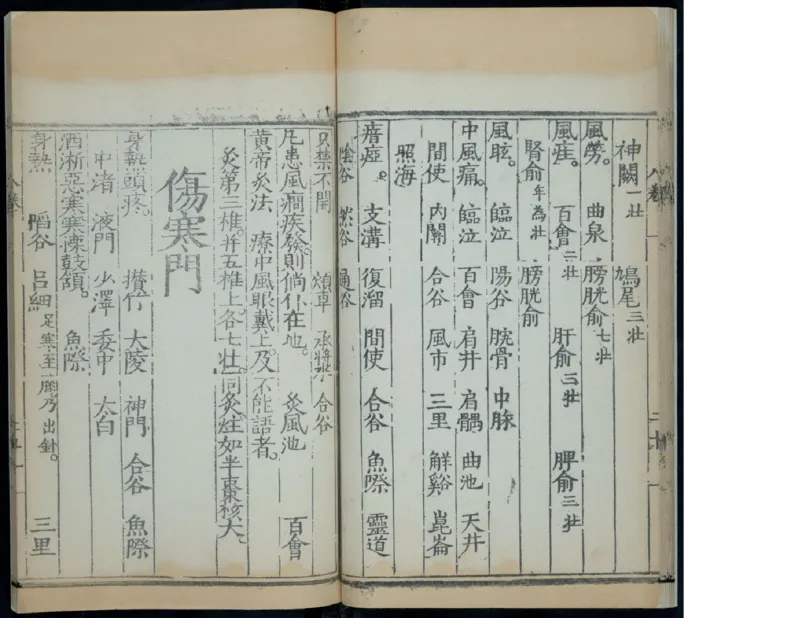 神闕一壯 鳩尾三壯
風勞。 曲泉 膀胱俞七壯
風疰。 百會二壯 肝俞三壯 脾俞三壯
腎俞年為壯 膀胱俞
風眩。 臨泣 陽谷 腕骨 申脉
中風痛。 臨泣 百會 肩井 肩髃 曲池 天井
間使 内關 合谷 風市 三里 解谿 崑崙
照海
瘖瘂。 支溝 復溜 間使 合谷 魚際 靈道
陰谷 然谷 通谷
口禁不開 頰車 承漿 合谷
凡患風癇疾發則倘仆在地。 灸風池 百會
黄帝灸法 療中風眼戴上。及不能語者。
灸第二椎。并五椎上。各七壯。同灸炷如半棗核大。
傷寒門
身熱頭疼。 攢竹 大陵 神門 合谷 魚際
中渚 液門 少澤 委中 太白
洒淅惡寒寒慄鼓頷。 魚際
身熱 陷谷 吕細足寒至膝乃出針。 三里